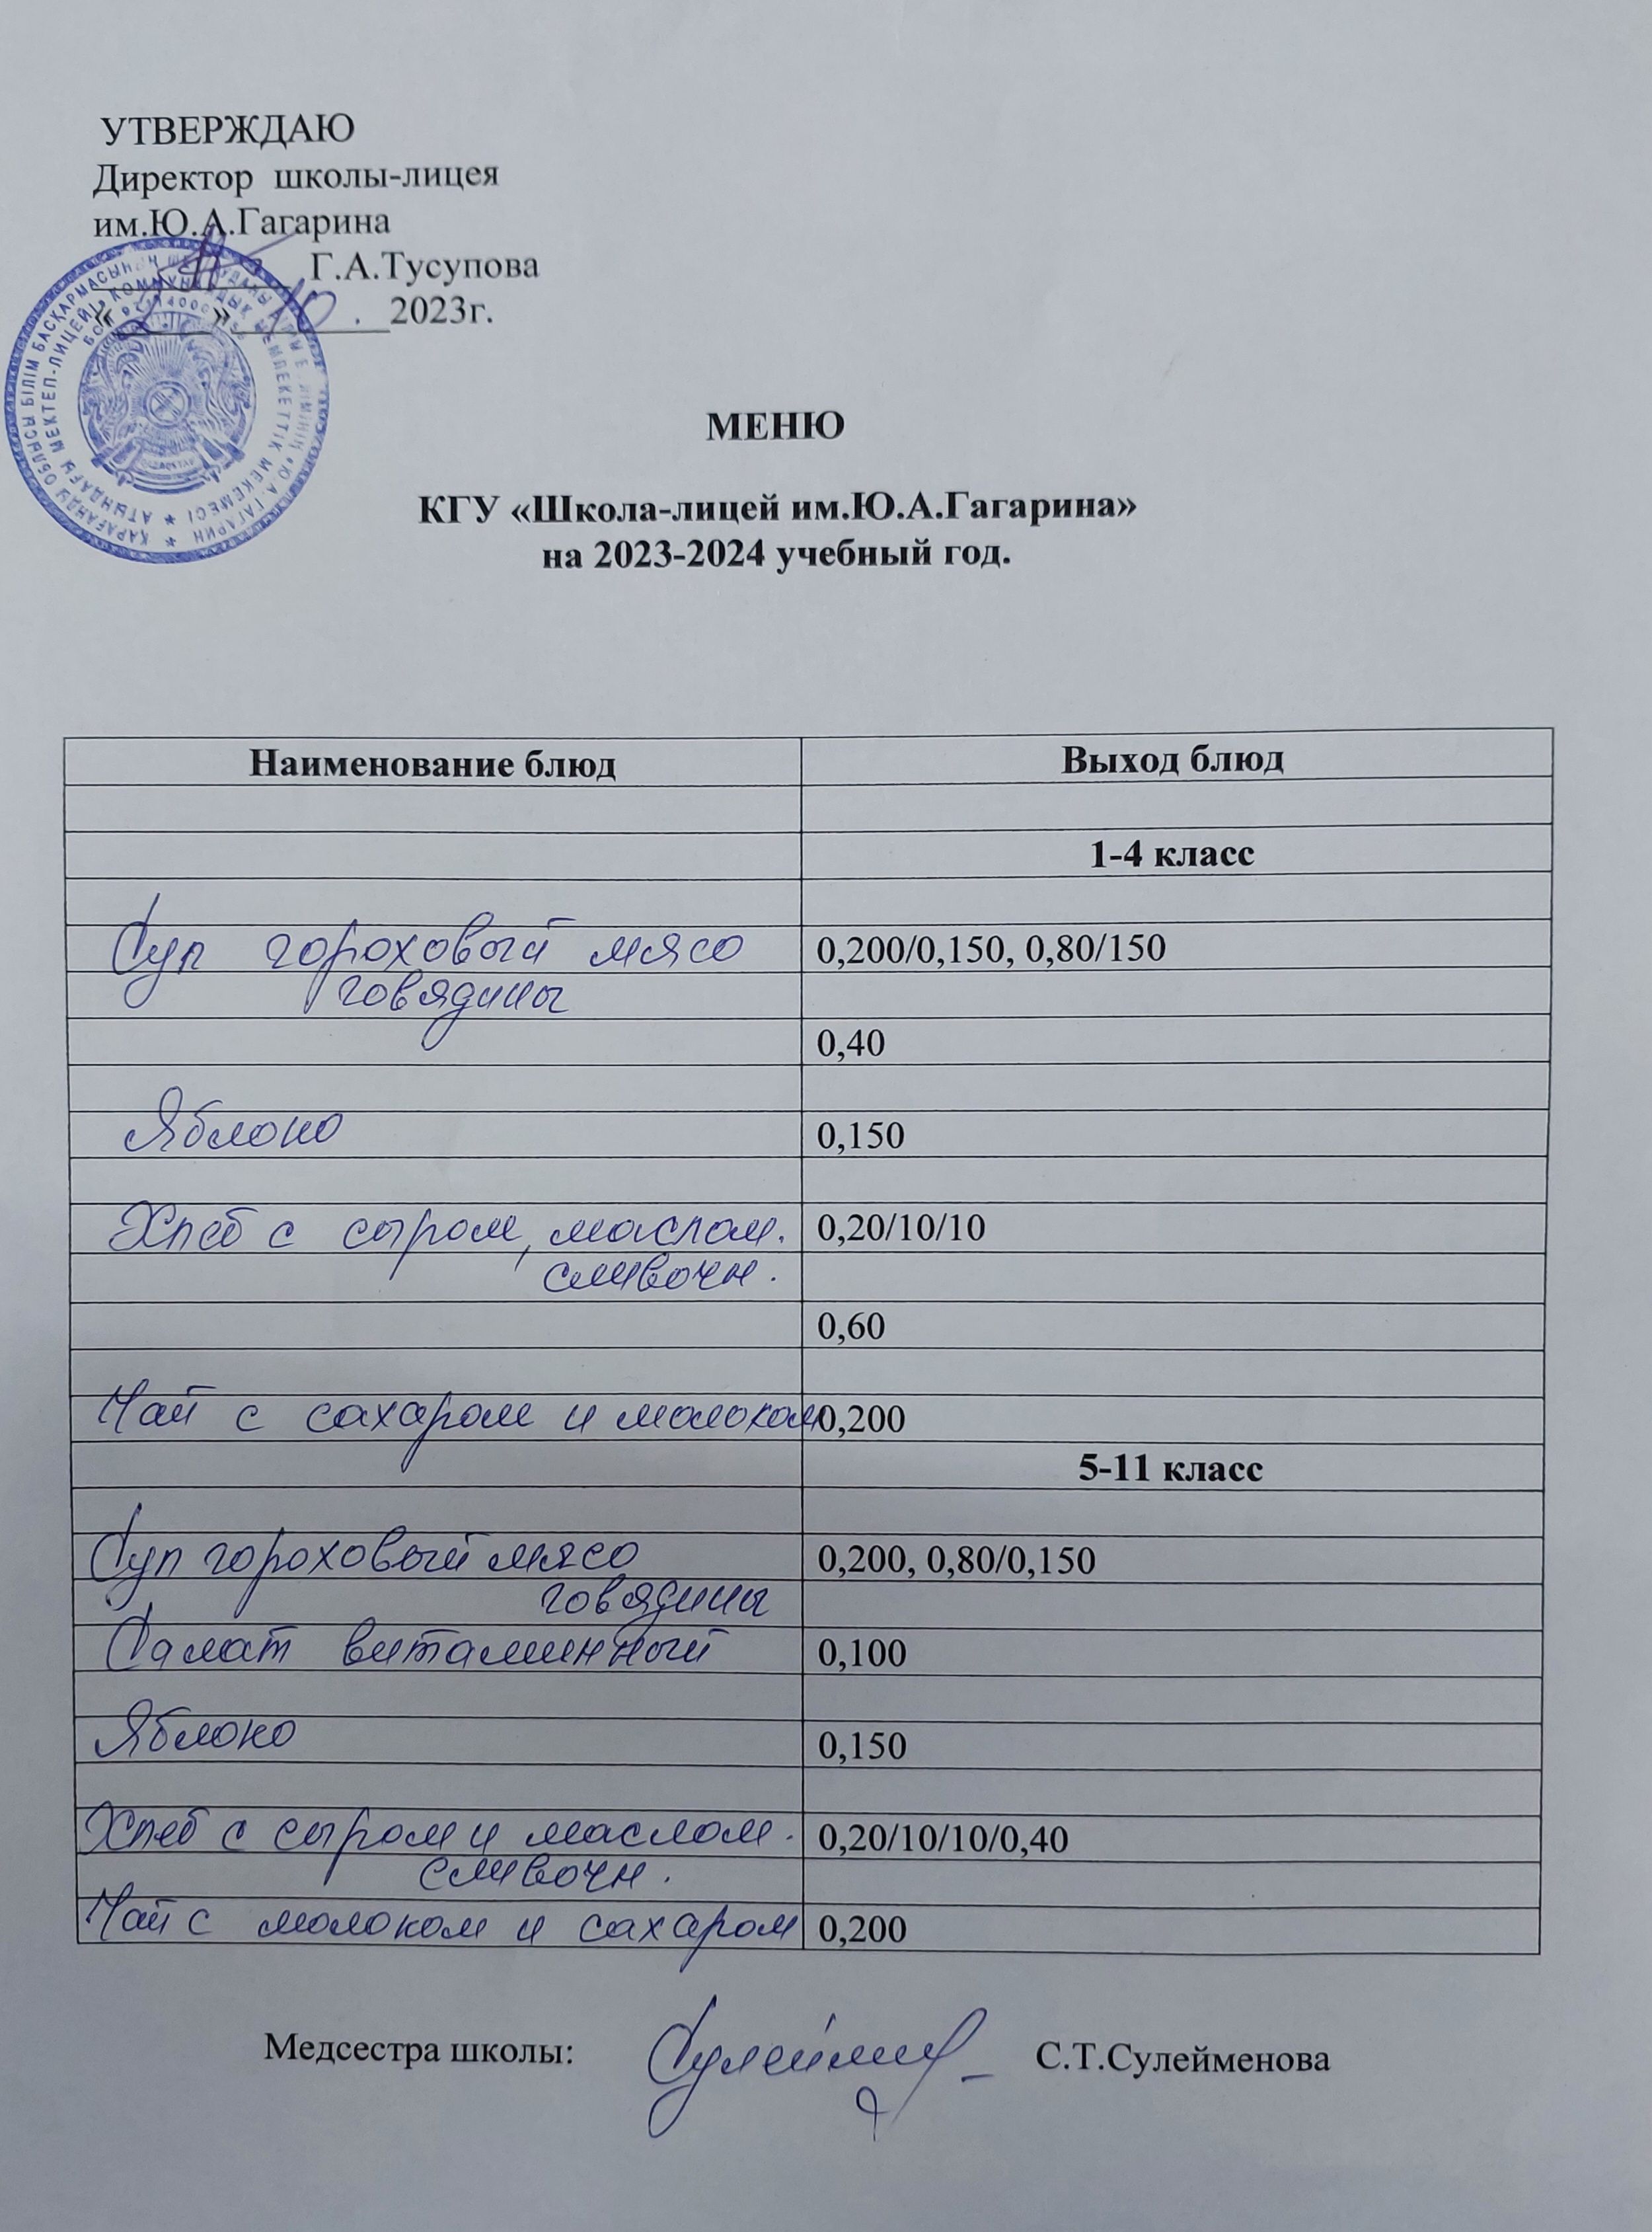 УТВЕРЖДАЮ
Директор школы-лицея
им.Ю.А.Гагарина
Г.А.Тусупова
« » 10. 2023г.
МЕНЮ
КГУ «Школа-лицей им.Ю.А.Гагарина»
на 2023-2024 учебный год.
Наименование блюд Выход блюд
1-4 класс
Суп гороховый мясо 0,200/0,150, 0,80/150
говядины
0,40
Яблоко 0,150
Хлеб с сыром, маслом. 0,20/10/10
сливочн.
0,60
Чай с сахаром и молоком 0,200
5-11 класс
Суп гороховый мясо 0,200, 0,80/0,150
говядины
Салат витаминный 0,100
Яблоко 0,150
Хлеб с сыром и маслом. 0,20/10/10/0,40
сливочн.
Чай с молоком и сахаром 0,200
Медсестра школы: С.Т.Сулейменова